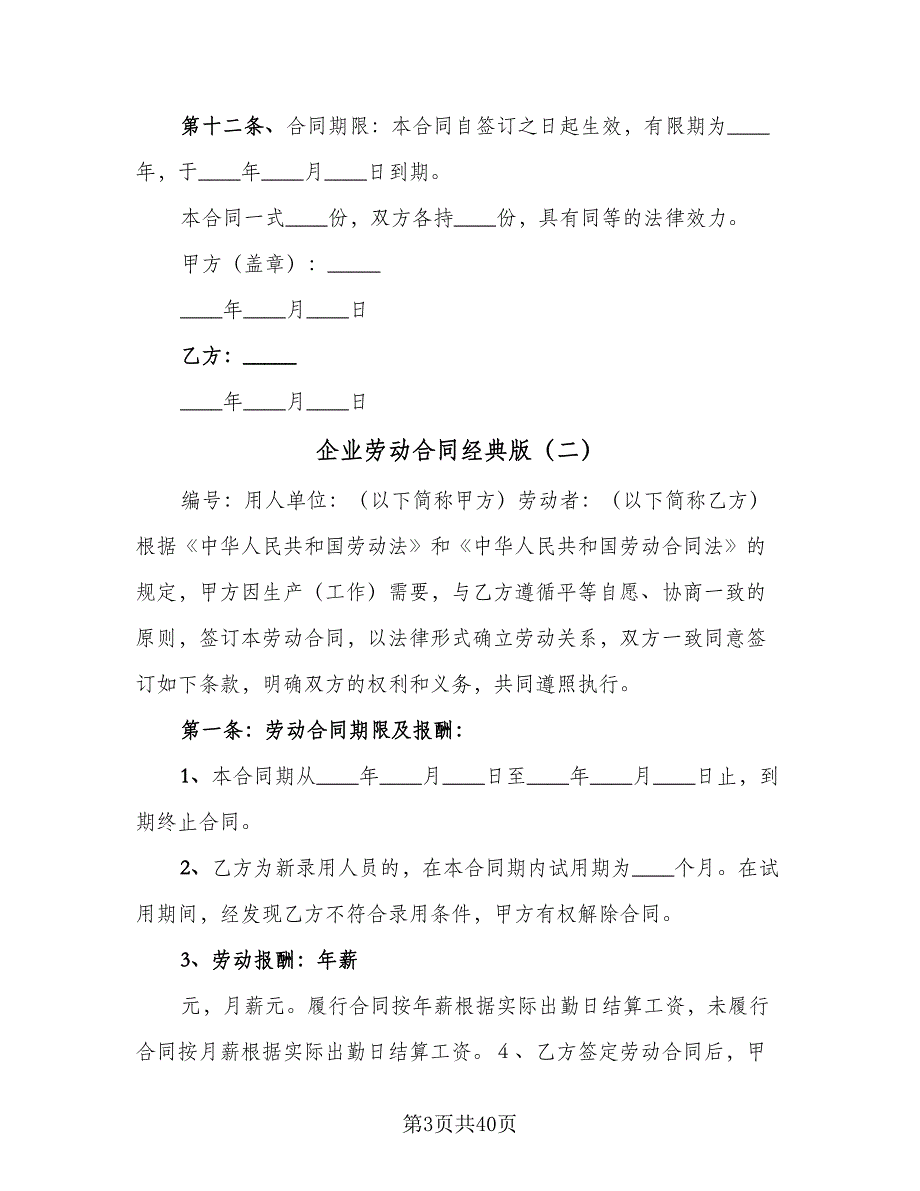 第十二条、合同期限：本合同自签订之日起生效，有限期为____
年，于____年____月____日到期。
本合同一式____份，双方各持____份，具有同等的法律效力。
甲方（盖章）：_____
____年____月____日
乙方：_____
____年____月____日
企业劳动合同经典版（二）
编号：用人单位：（以下简称甲方）劳动者：（以下简称乙方）
根据《中华人民共和国劳动法》和《中华人民共和国劳动合同法》的
规定，甲方因生产（工作）需要，与乙方遵循平等自愿、协商一致的
原则，签订本劳动合同，以法律形式确立劳动关系，双方一致同意签
订如下条款，明确双方的权利和义务，共同遵照执行。
第一条：劳动合同期限及报酬：
1、本合同期从____年____月____日至____年____月____日止，到
期终止合同。
2、乙方为新录用人员的，在本合同期内试用期为____个月。在试
用期间，经发现乙方不符合录用条件，甲方有权解除合同。
3、劳动报酬：年薪
元，月薪元。履行合同按年薪根据实际出勤日结算工资，未履行
合同按月薪根据实际出勤日结算工资。４、乙方签定劳动合同后，甲
第3页共40页